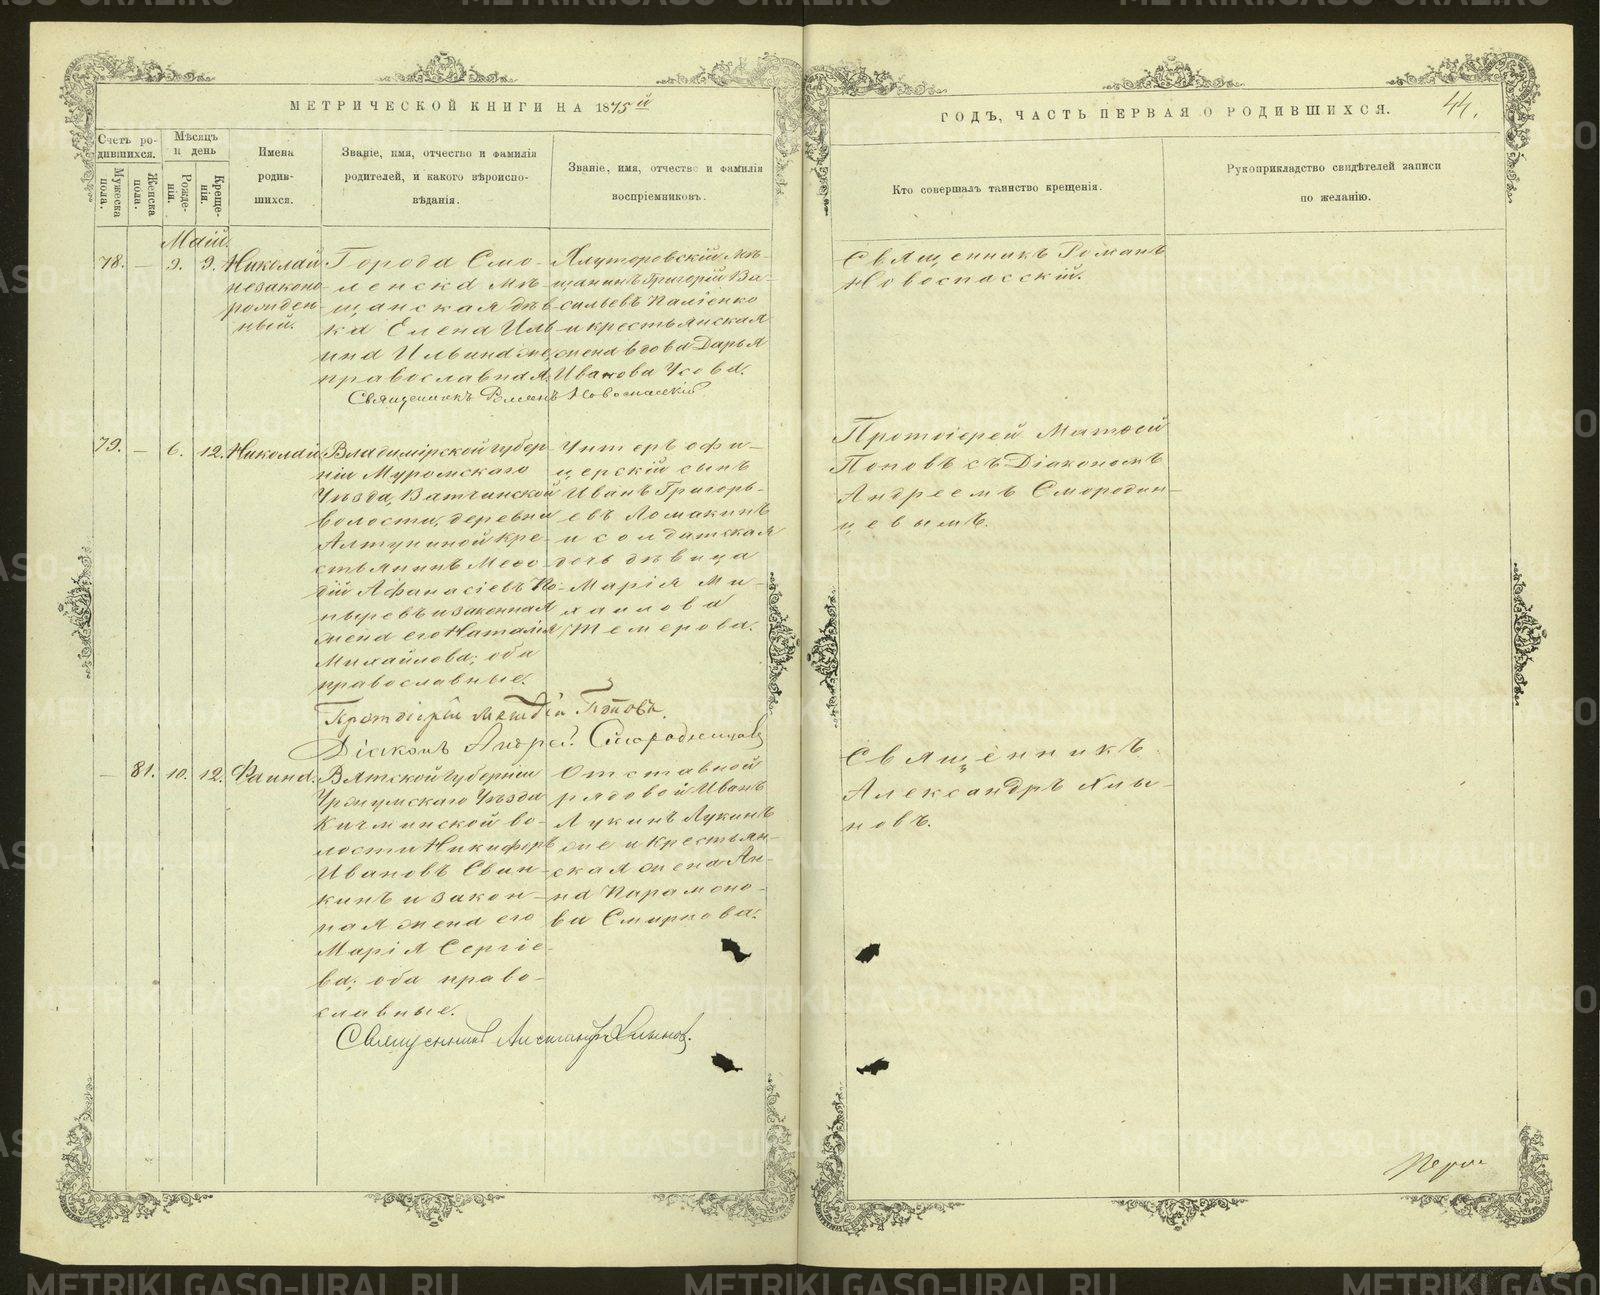 МЕТРИЧЕСКОЙ КНИГИ НА 1875й
ГОДЪ, ЧАСТЬ ПЕРВАЯ О РОДИВШИХСЯ.
44.
Счетъ родившихся.
Мужеска пола.
Женска пола.
Мѣсяцъ и день
Рожденія.
Крещенія.
Имена
родив-
шихся.
Званіе, имя, отчество и фамилія
родителей, и какого вѣроиспо-
вѣданія.
Званіе, имя, отчество и фамилія
воспріемниковъ.
Кто совершалъ таинство крещенія.
Рукоприкладство свидѣтелей записи
по желанію.
Май.
78. — 9. 9.
Николай
незаконо-
рожден-
ный.
Города Смо-
ленска мѣ-
щанская дѣв-
ка Елена Иль-
ина Ильина же,
православная.
Ялуторовскій мѣ-
щанинъ Григорій Ва-
сильевъ Паліенко
и крестьянская
жена вдова Дарья
Иванова Усова.
Священникъ Романъ
Новоспасскій.
Священникъ Романъ Новоспасскій
79. — 6. 12.
Николай
Владимірской губер-
ніи Муромскаго
Уѣзда, Ватчинской
волости, деревни
Алтуниной кре-
стьянинъ Мефо-
дій Афанасіевъ Ко-
ныревъ и законная
жена его Наталія
Михайлова; оба
православные.
Унтеръ офи-
церскій сынъ
Иванъ Григорь-
евъ Ломакинъ
и солдатская
дочь дѣвица
Марія Ми-
хаилова
Темерова.
Протоіерей Матѳей
Поповъ съ Діакономъ
Андреемъ Смородин-
цевымъ.
Протоіерей Матѳій Поповъ.
Діаконъ Андрей Смородинцевъ
— 81. 10. 12.
Фаина.
Вятской губерніи
Уржумскаго Уѣзда
Кичминской во-
лости Никифоръ
Ивановъ Свин-
кинъ и закон-
ная жена его
Марія Сергіе-
ва; оба право-
славные.
Отставной
рядовой Иванъ
Лукинъ Лукинъ
же и крестьян-
ская жена Ан-
на Парамоно-
ва Смирнова.
Священникъ
Александръ Хлы-
новъ.
Священникъ Александръ Хлыновъ.
METRIKI.GASO-URAL.RU